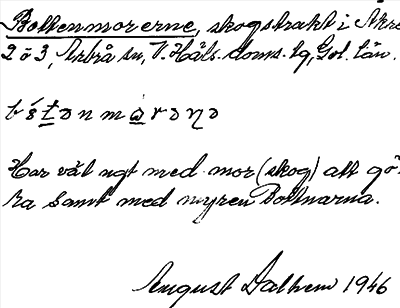 Bottenmorerne, skogstrakt i Åkre
2 o 3, Arbrå sn, V. Häls. doms. tg, Gvl. län.
Har väl ngt med mor (skog) att gö-
ra samt med myren Bottnarna.
August Dalhem 1946